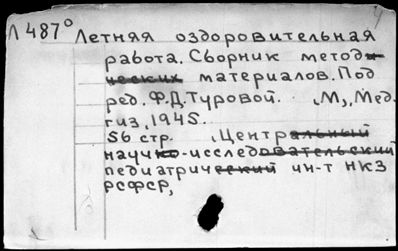 Л 487° Летняя оздоровительная
работа. Сборник методи
ческих материалов. Под
ред. Ф.Д. Туровой. М., Мед.
гиз, 1945.
56 стр. (Центральный
научно-исследовательский
педиатрический ин-т НКЗ
РСФСР,